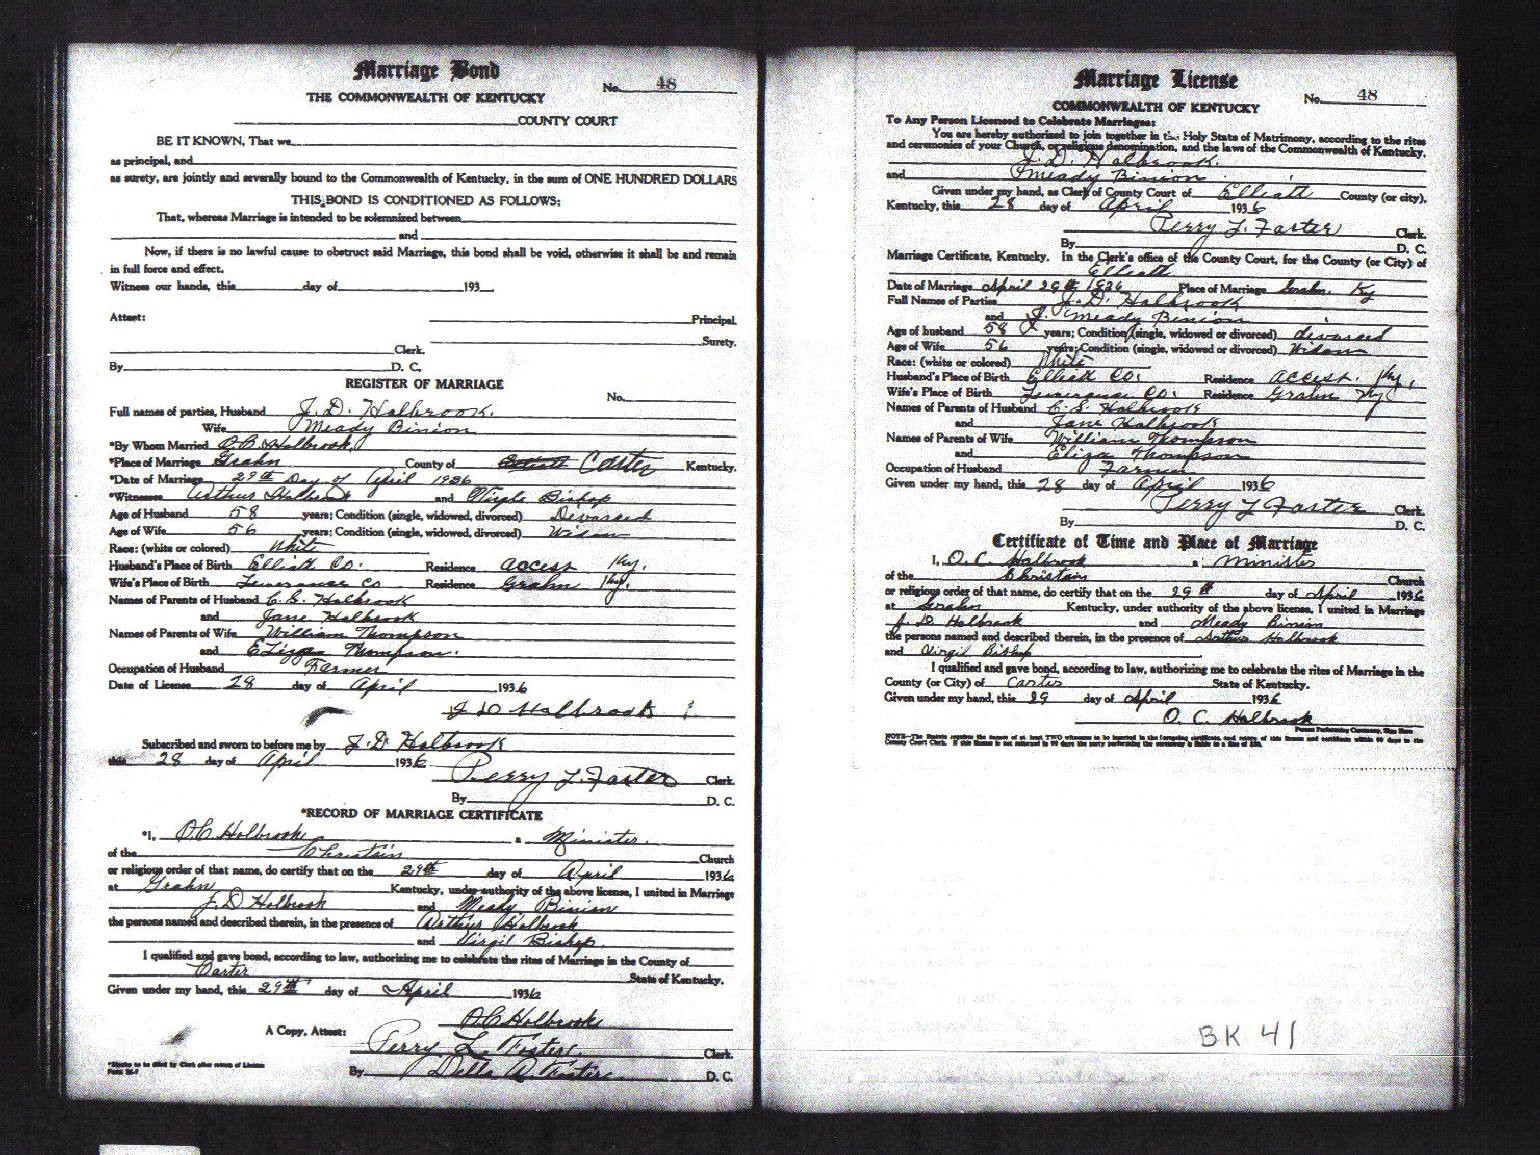 Marriage Bond
No. 48
THE COMMONWEALTH OF KENTUCKY
COUNTY COURT
BE IT KNOWN, That we
as principal, and
as surety, are jointly and severally bound to the Commonwealth of Kentucky, in the sum of ONE HUNDRED DOLLARS
THIS BOND IS CONDITIONED AS FOLLOWS:
That, whereas Marriage is intended to be solemnized between
and
Now, if there is no lawful cause to obstruct said Marriage, this bond shall be void, otherwise it shall be and remain
in full force and effect.
Witness our hands, this day of 193
Attest: Principal.
Surety.
Clerk.
By D. C.
REGISTER OF MARRIAGE
No.
Full names of parties, Husband J. D. Holbrook.
Wife Meady Binion
*By Whom Married O. C. Holbrook
*Place of Marriage Grahn County of Elliott Carter Kentucky.
*Date of Marriage 29th Day of April 1936
*Witnesses Arthur Holbrook and Virgle Bishop
Age of Husband 58 years; Condition (single, widowed, divorced) Devorced
Age of Wife 56 years; Condition (single, widowed, divorced) Widow
Race: (white or colored) White
Husband's Place of Birth Elliott Co. Residence Access Ky.
Wife's Place of Birth Co Residence Grahn Ky.
Names of Parents of Husband C. S. Holbrook
and Jane Holbrook
Names of Parents of Wife William Thompson
and Elizga Thompson.
Occupation of Husband Farmer
Date of License 28 day of April 1936
J D Holbrook
Subscribed and sworn to before me by J. D. Holbrook
this 28 day of April 1936
Perry L. Foster Clerk.
By D. C.
*RECORD OF MARRIAGE CERTIFICATE
*I, O. C. Holbrook a Minister.
of the Christain Church
or religious order of that name, do certify that on the 29th day of April 1936
at Grahn Kentucky, under authority of the above license, I united in Marriage
J. D Holbrook and Meady Binion
the persons named and described therein, in the presence of Arthur Holbrook
and Virgil Bishop.
I qualified and gave bond, according to law, authorizing me to celebrate the rites of Marriage in the County of
Carter State of Kentucky.
Given under my hand, this 29th day of April 1936
O C Holbrook
A Copy, Attest: Perry L. Foster Clerk.
By Della A. Foster D. C.
*Blanks to be filled by Clerk after return of License
Marriage License
No. 48
COMMONWEALTH OF KENTUCKY
To Any Person Licensed to Celebrate Marriages:
You are hereby authorized to join together in the Holy State of Matrimony, according to the rites
and ceremonies of your Church, or religious denomination, and the laws of the Commonwealth of Kentucky,
J. D. Holbrook.
and Meady Binion
Given under my hand, as Clerk of County Court of Elliott County (or city),
Kentucky, this 28 day of April 1936
Perry L. Foster Clerk.
By D. C.
Marriage Certificate, Kentucky. In the Clerk's office of the County Court, for the County (or City) of
Elliott
Date of Marriage April 29th 1936 Place of Marriage Grahn Ky
Full Names of Parties J. D. Holbrook
and Meady Binion
Age of husband 58 years; Condition (single, widowed or divorced) divorced
Age of Wife 56 years; Condition (single, widowed or divorced) Widow
Race: (white or colored) White
Husband's Place of Birth Elliott Co. Residence Access. Ky.
Wife's Place of Birth Co. Residence Grahn Ky
Names of Parents of Husband C. S. Holbrook
and Jane Holbrook
Names of Parents of Wife William Thompson
and Eliza Thompson
Occupation of Husband Farmer
Given under my hand, this 28 day of April 1936
Perry L Foster Clerk.
By D. C.
Certificate of Time and Place of Marriage
I, O. C. Holbrook a Minister
of the Christain Church
or religious order of that name, do certify that on the 29th day of April 1936
at Grahn Kentucky, under authority of the above license, I united in Marriage
J. D Holbrook and Meady Binion
the persons named and described therein, in the presence of Arthur Holbrook
and Virgil Bishop
I qualified and gave bond, according to law, authorizing me to celebrate the rites of Marriage in the
County (or City) of Carter State of Kentucky.
Given under my hand, this 29 day of April 1936
O. C. Holbrook
Person Performing Ceremony, Sign Here
BK 41